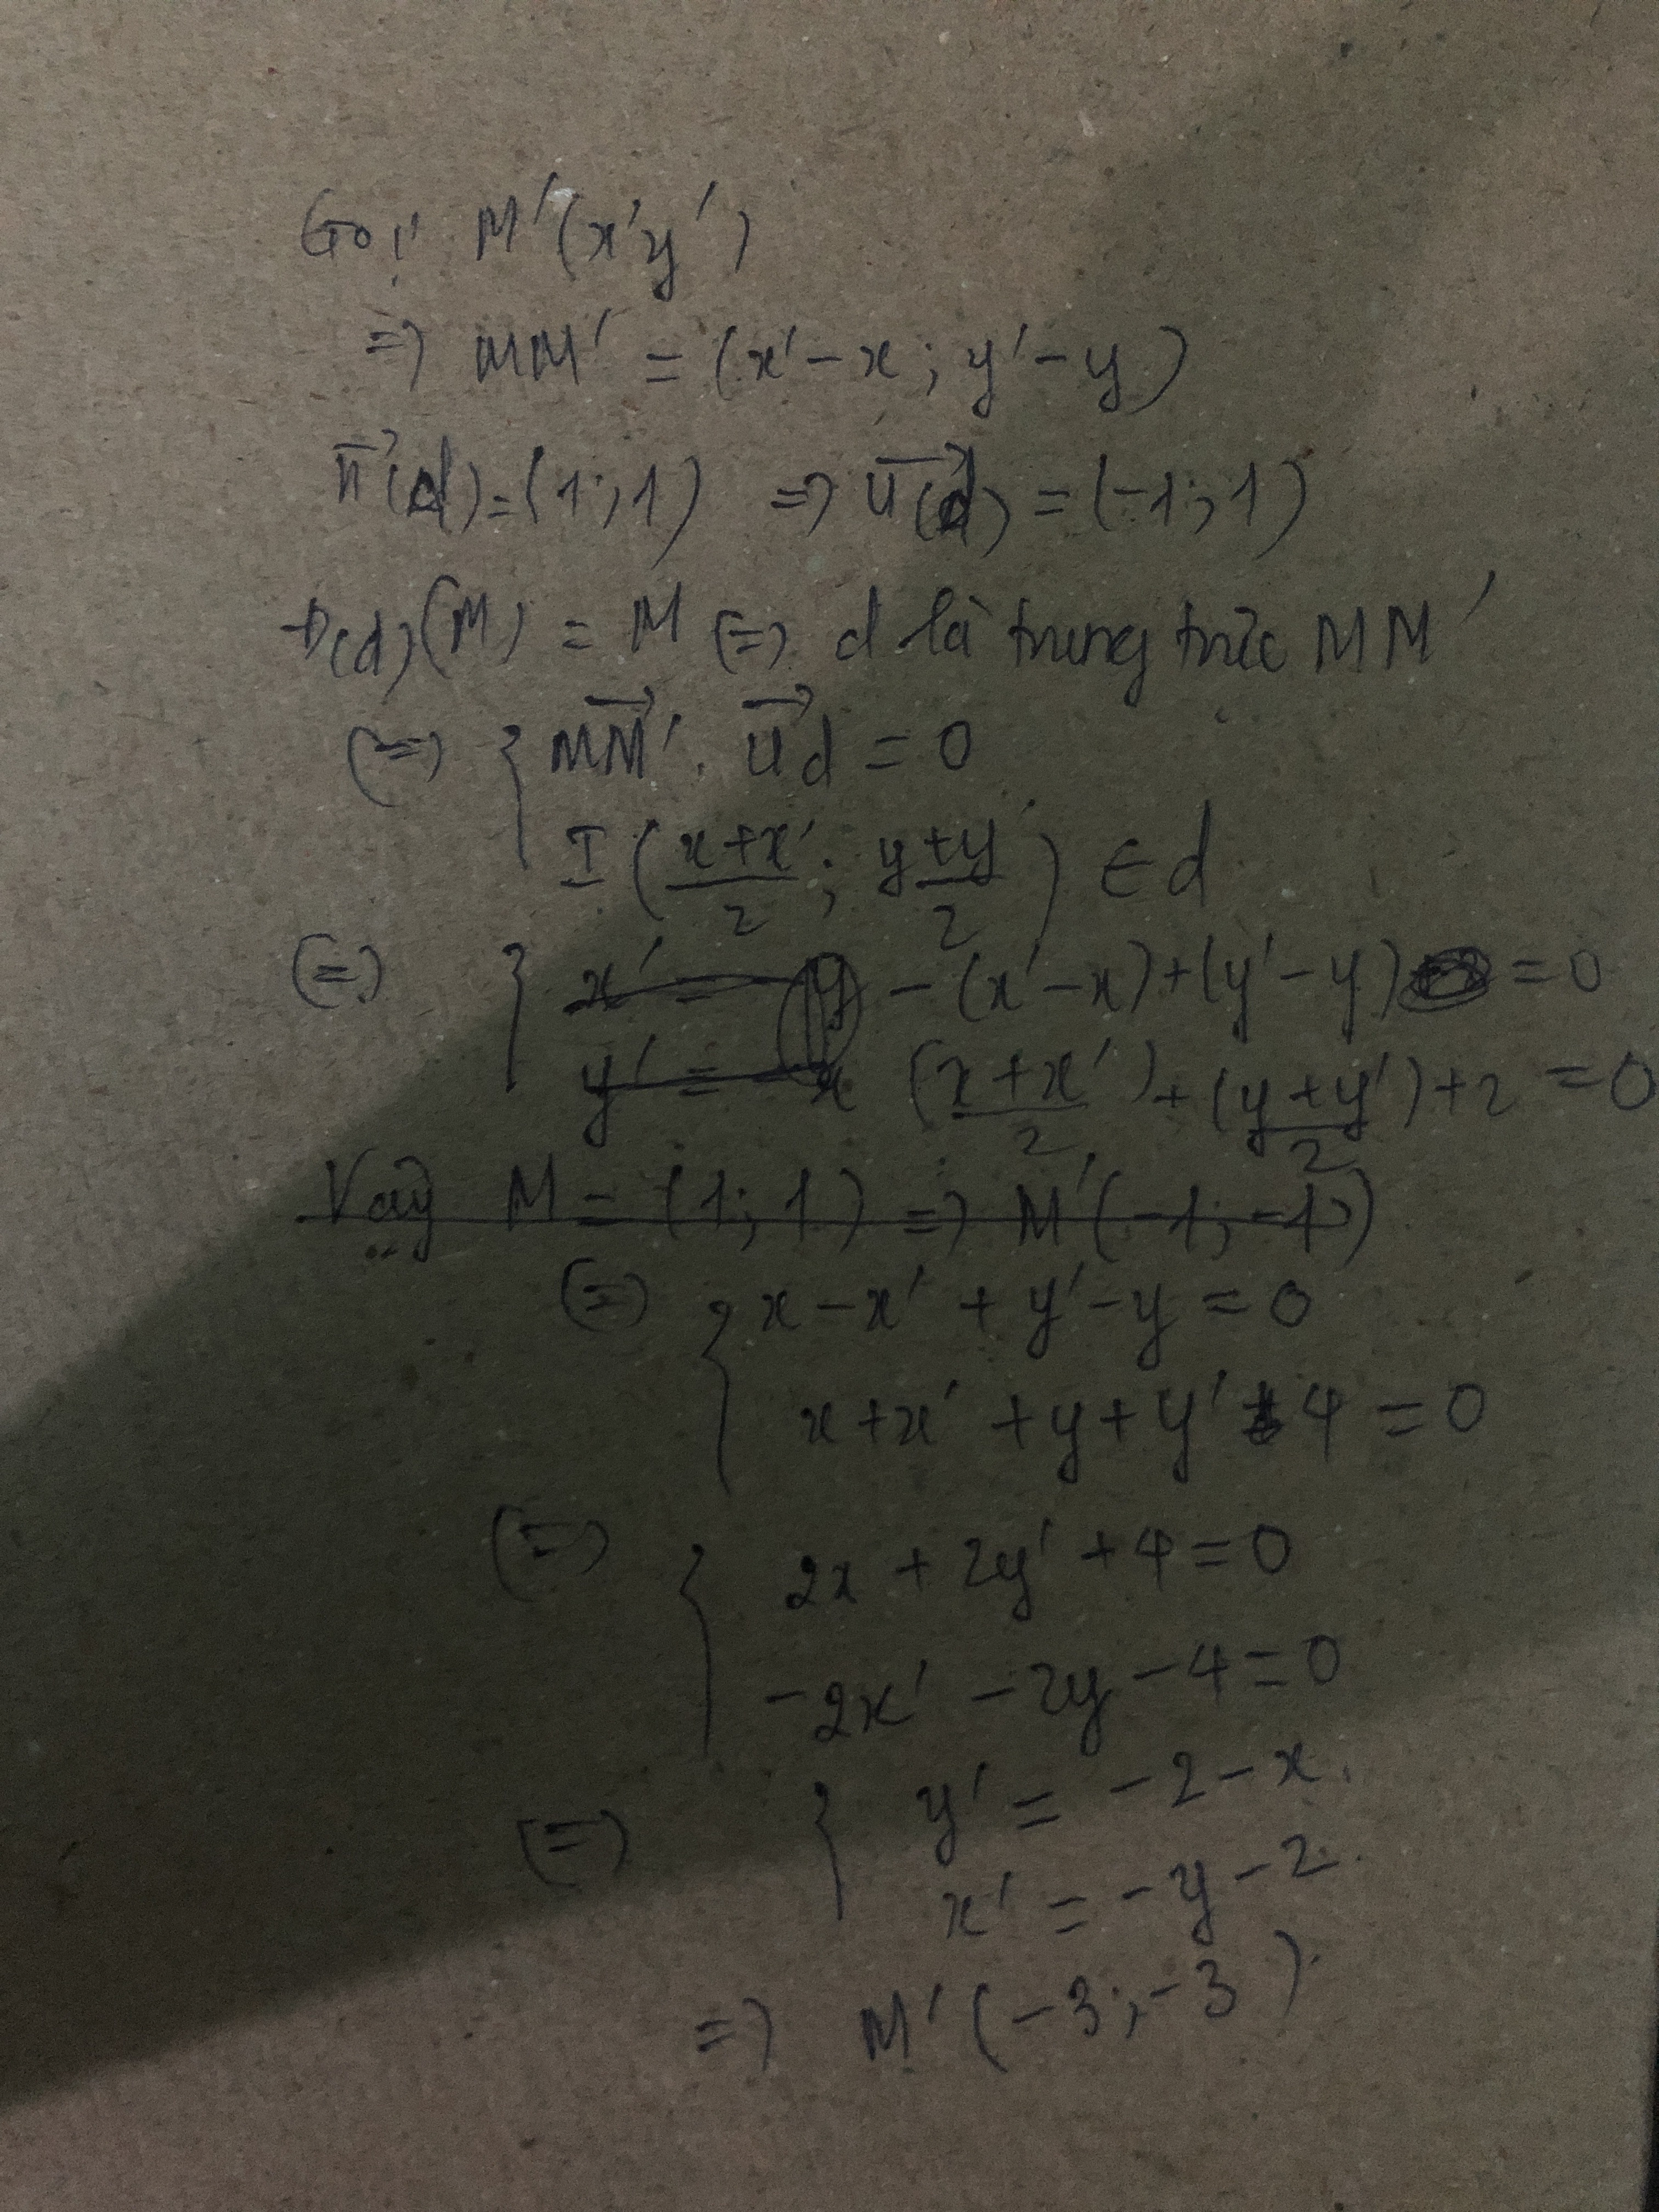 Gọi M'(x'y')
=> MM' = (x'-x; y'-y)
n⃗(d) = (1;1) => u⃗(d) = (-1;1)
Đ(d)(M) = M (=) d là trung trực MM'
(=) { MM⃗'. u⃗d = 0
I ( (x+x')/2 ; (y+y)/2 ) ∈ d
(=) { x' = -y -(x'-x)+(y'-y) = 0
y' = -x ((x+x')/2)+((y+y')/2)+2 = 0
Vậy M = (1;1) => M'(-1;-1)
(=) { x-x' + y'-y = 0
x+x' +y+y' +4 = 0
(=) { 2x + 2y' +4 = 0
-2x' -2y -4 = 0
(=) { y' = -2-x.
x' = -y-2.
=> M'(-3;-3).